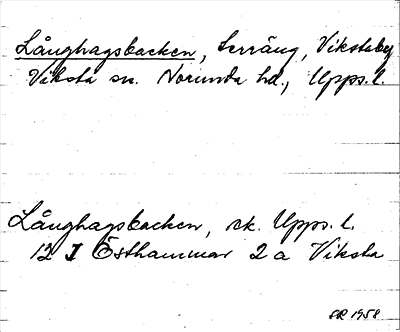 Långhagsbacken, terräng, Vikstaby
Viksta sn. Norunda hd., Upps. l.
Långhagsbacken, rk. Upps. l.
12 I Östhammar 2 a Viksta
ER 1958